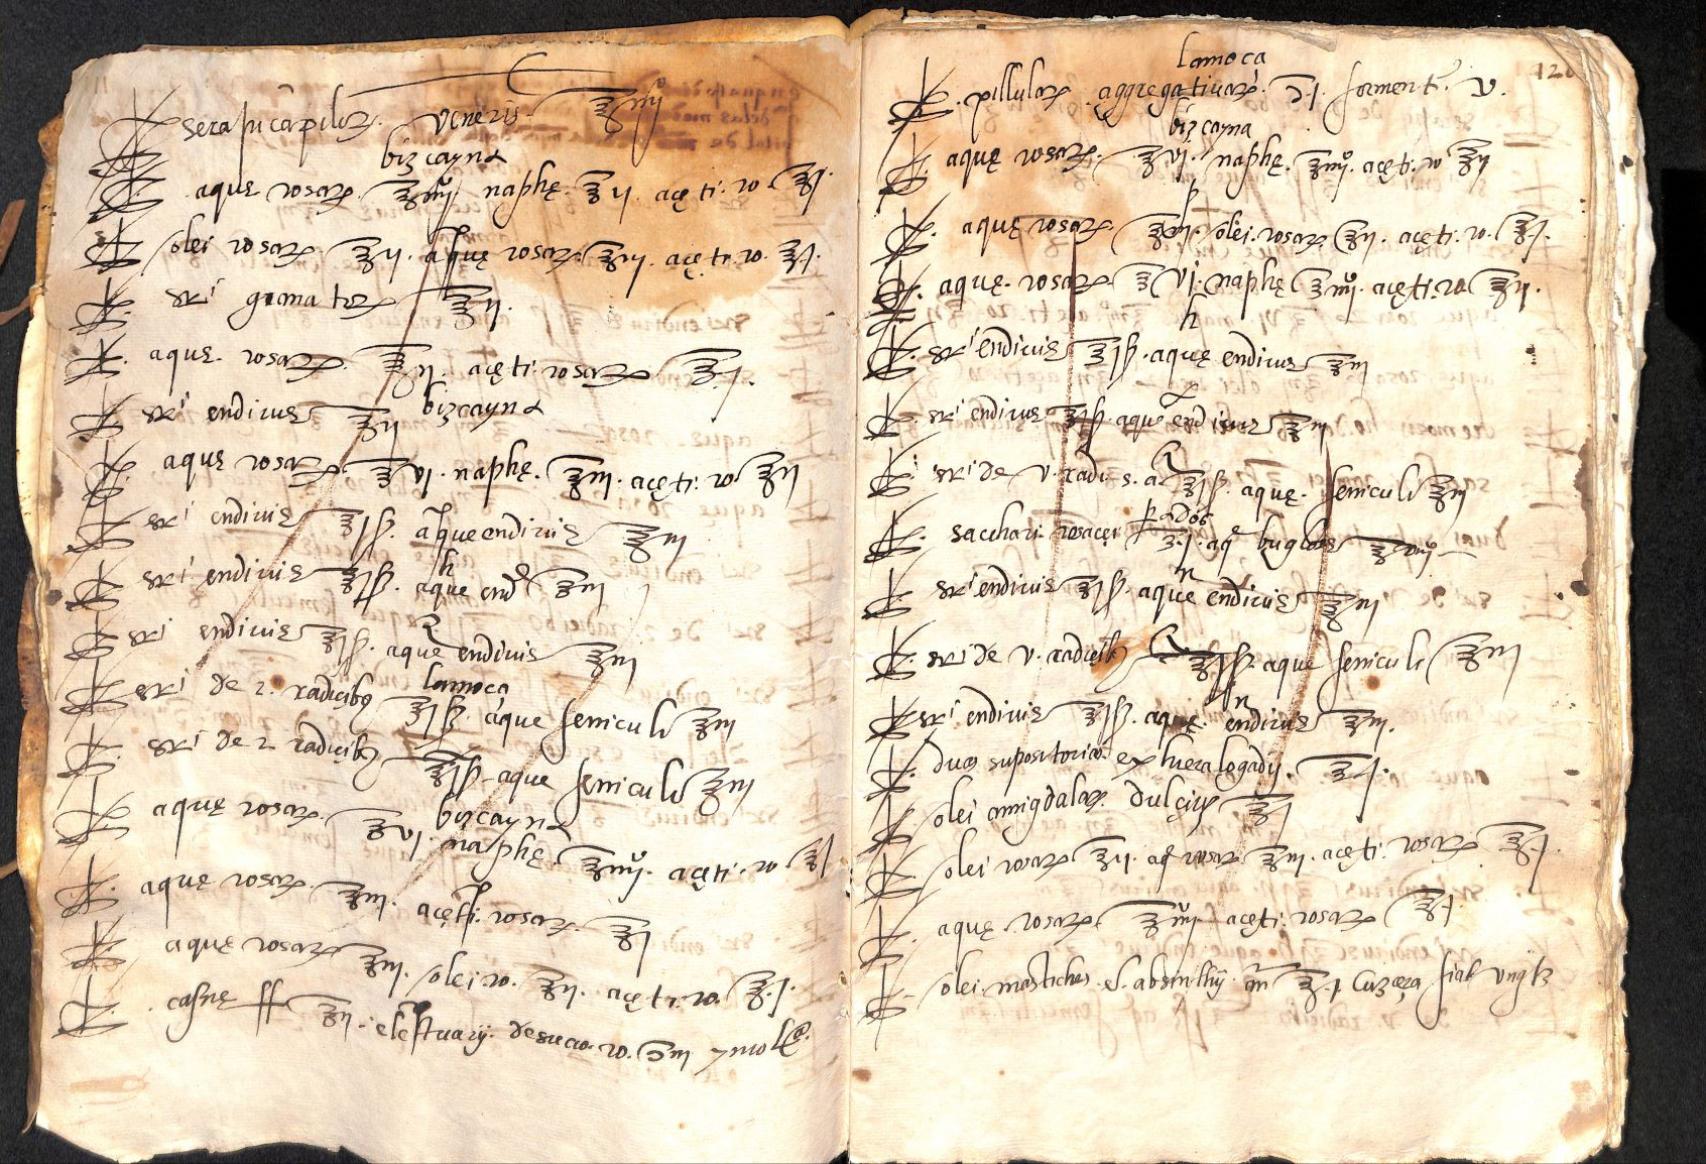 ℞ serapii capiloꝝ. veneris ℥ iiij
bizcayna
℞ aque rosaꝝ. ℥ iiij naphę. ℥ ij. acęti. ro. ℥ j.
℞ olei rosaꝝ ℥ ij. aque rosaꝝ. ℥ iij. acęti. ro. ℥ j.
℞ sri granatoꝝ ℥ ij.
℞ aque. rosaꝝ. ℥ ij. acęti. rosaꝝ ℥ j.
℞ sri endivie ℥ ij
bizcayna
℞ aque rosaꝝ. ℥ vj. naphę. ℥ iij. acęti. ro ℥ ij
℞ sri endivie ℥ jß. aque endivie ℥ iij
h
℞ sri endivie ℥ jß. aque end ℥ iij
2
℞ sri endivie ℥ jß. aque endivie ℥ iij
lamoca
℞ sri de 2. radicibꝫ ℥ jß. aque feniculi ℥ iij
℞ sri de 2 radicibꝫ ℥ jß aque feniculi ℥ iij
bizcayna
℞ aquę rosaꝝ. ℥ vj. naphę ℥ iiij. acęti. ro ℥ j
℞ aquę rosaꝝ. ℥ iij. acęti. rosaꝝ. ℥ j
℞ aquę rosaꝝ ℥ iij. olei ro. ℥ ij. acęti. ro. ℥ j.
℞ casię ff ℥ ij. electuarij. de suco. ro. ʒ iij
120
lamoca
℞ pillulaꝝ. aggregativaꝝ. ʒ j. forment. v.
bizcayna
℞ aquę rosaꝝ. ℥ vj. naphę. ℥ iiij. acęti. ro ℥ ij
℞ aquę rosaꝝ. olei. rosaꝝ ℥ ij. acęti. ro. ℥ j.
℞ aquę. rosaꝝ ℥ vj. naphę ℥ iiij. acęti. ro ℥ ij.
h
℞ sri endivie ℥ jß. aquę endivie ℥ iij
2
℞ sri endivie ℥ jß. aque endivie ℥ iij
℞ sri de v. radi s. a ℥ jß. aquę. feniculi ℥ iij
℞ sacchari. rosacęi ʒ j. aq buglose ℥ iiij
n
℞ sri endivie ℥ jß. aque endivie ℥ iij
℞ sri de v. radicibꝫ ℥ jß. aque feniculi ℥ iij
n
℞ sri endivie ℥ jß. aquę endivie ℥ iij.
℞ duo supositoria. ex hiera logadij. ℥ j.
℞ olei amigdalaꝝ dulçiuꝝ ℥ j
℞ olei rosaꝝ ℥ ij. aq rosaꝝ ℥ iij. acęti. rosaꝝ ℥ j.
℞ aquę. rosaꝝ. ℥ iiij acęti. rosaꝝ ℥ j.
℞ olei. mastiches. et. absinthij. an ℥ j. fiat